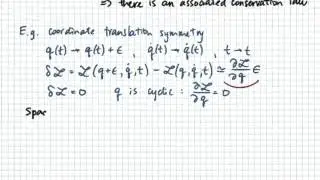 ⇒ there is an associated conservation law
E.g. coordinate translation symmetry
q(t) → q(t) + ε , q̇(t) → q̇(t) , t → t
δℒ = ℒ(q+ε, q̇, t) − ℒ(q, q̇, t) ≃ ∂ℒ/∂q ε
δℒ = 0 q is cyclic : ∂ℒ/∂q = 0
Spac